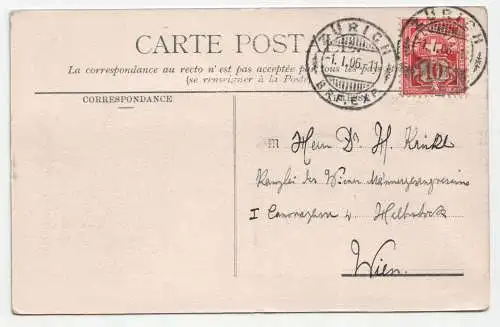 CARTE POSTALE
La correspondance au recto n'est pas acceptée par tous les pays
(se renseigner à la Poste
CORRESPONDANCE
ZÜRICH
-1.I.06.-11
BRF.EXP.
ZÜRICH
-1.I.06.
10
M Herrn Dr. H. Krückl
Kanzlei des Wiener Männergesangvereins
I Canovagasse
Wien.